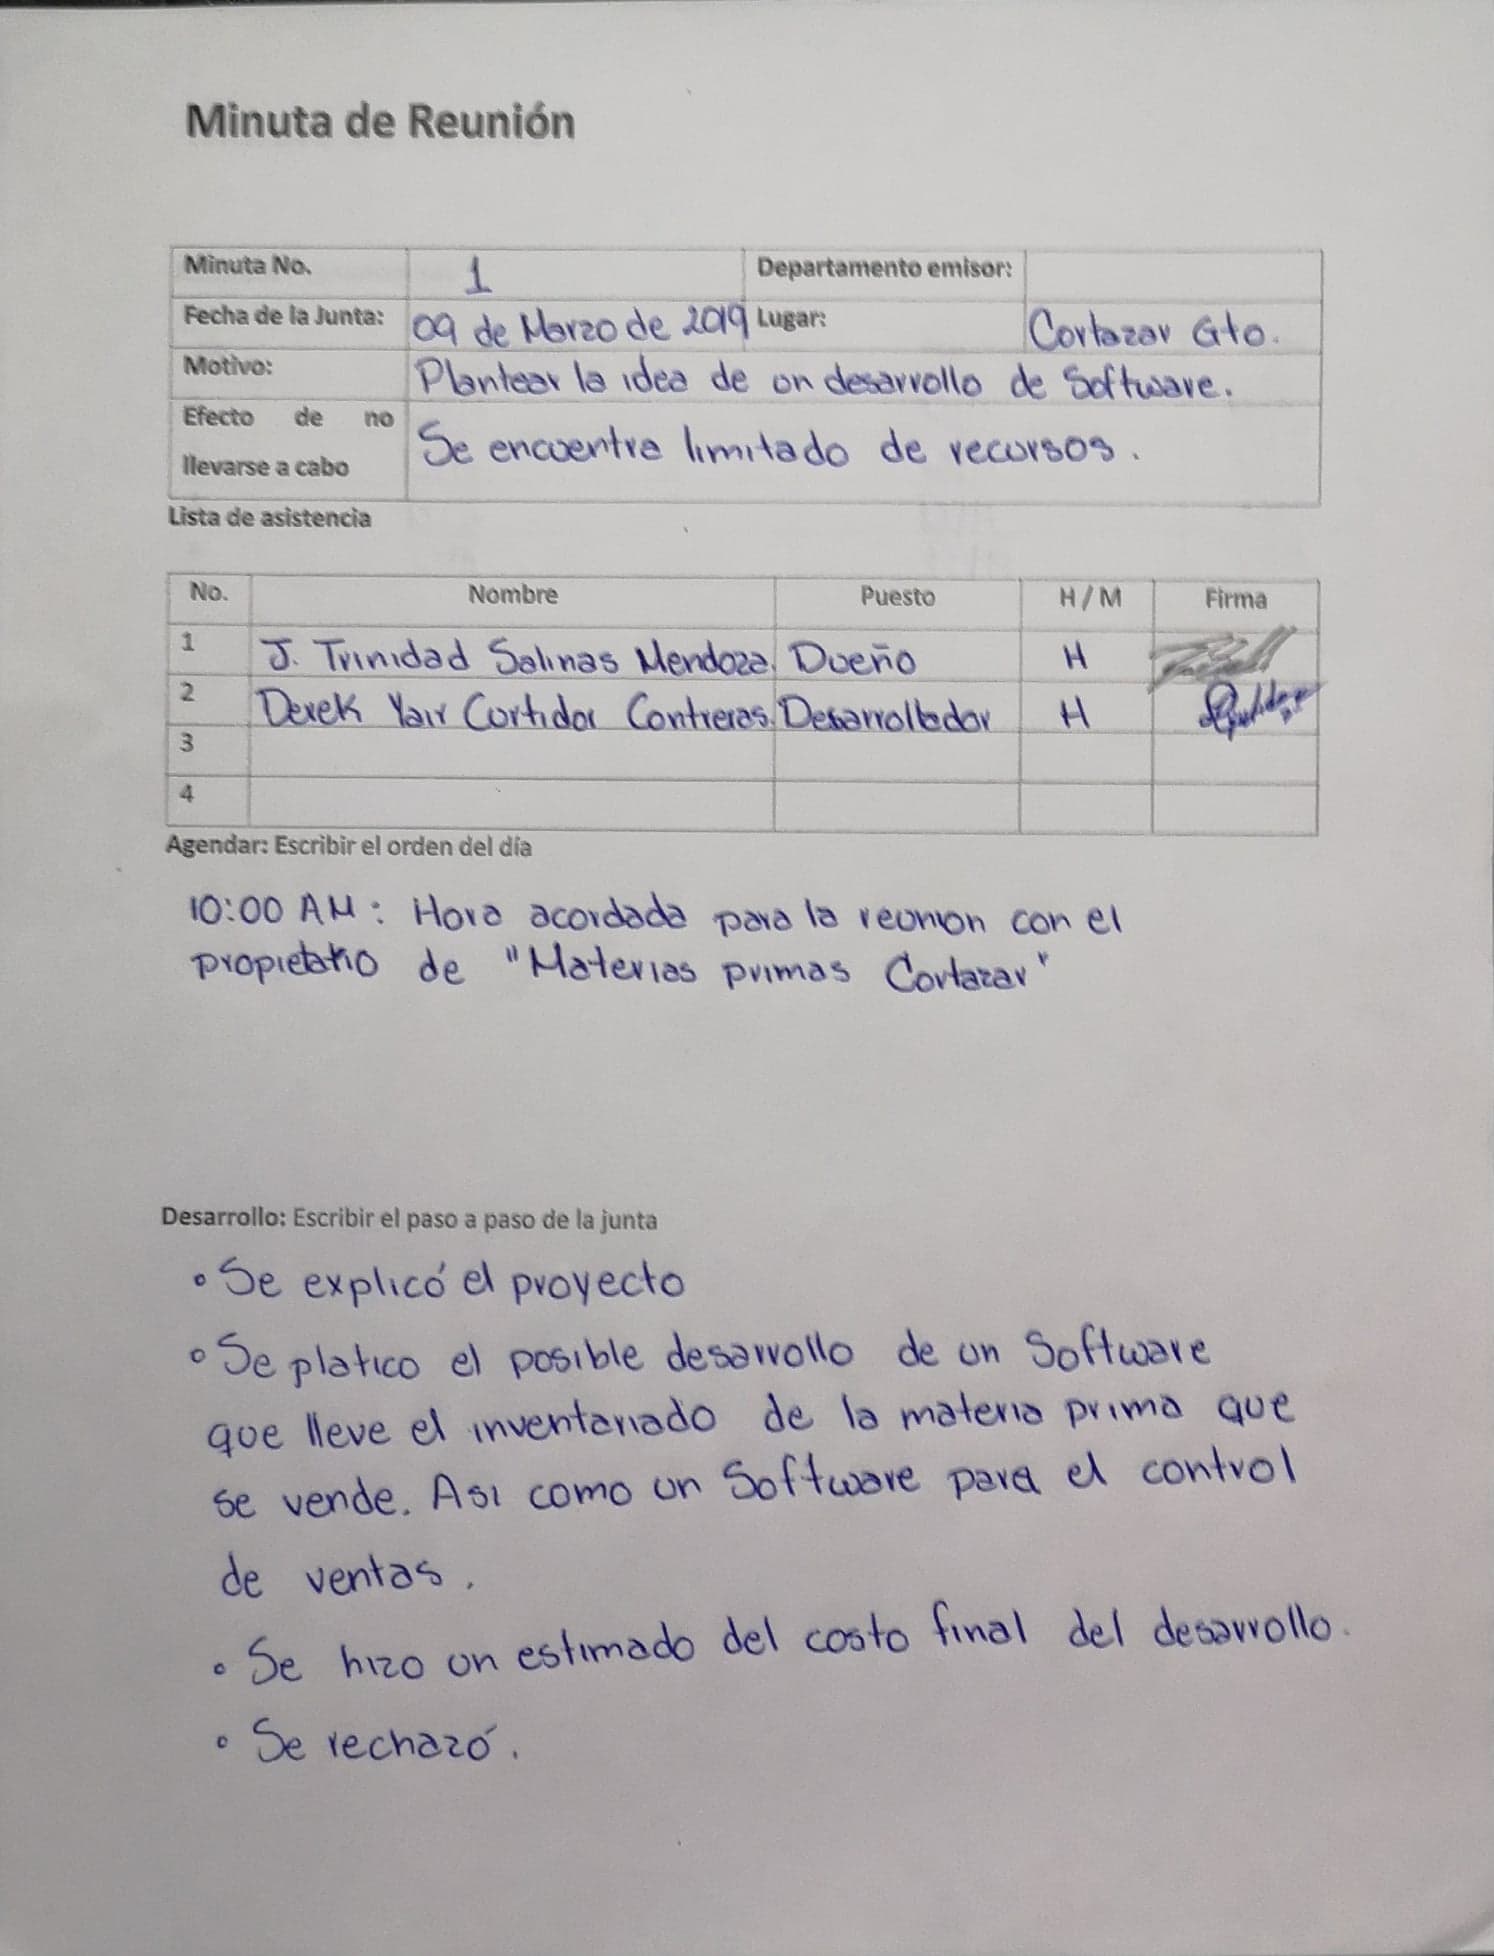 Minuta de Reunión
Minuta No. 1 Departamento emisor:
Fecha de la Junta: 09 de Marzo de 2019 Lugar: Cortazar Gto.
Motivo: Plantear la idea de un desarrollo de Software.
Efecto de no
llevarse a cabo Se encuentra limitado de recursos.
Lista de asistencia
No. Nombre Puesto H / M Firma
1 J. Trinidad Salinas Mendoza. Dueño H
2 Derek Yair Cortidor Contreras. Desarrollador H
3
4
Agendar: Escribir el orden del día
10:00 AM: Hora acordada para la reunion con el
propietario de "Materias primas Cortazar"
Desarrollo: Escribir el paso a paso de la junta
• Se explicó el proyecto
• Se platico el posible desarrollo de un Software
que lleve el inventariado de la materia prima que
se vende. Asi como un Software para el control
de ventas.
• Se hizo un estimado del costo final del desarrollo.
• Se rechazó.